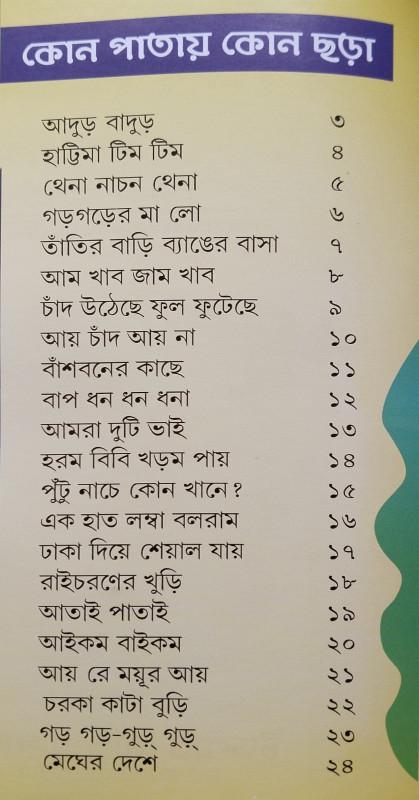 কোন পাতায় কোন ছড়া
আদুড় বাদুড় ৩
হাট্টিমা টিম টিম ৪
থেনা নাচন থেনা ৫
গড়গড়ের মা লো ৬
তাঁতির বাড়ি ব্যাঙের বাসা ৭
আম খাব জাম খাব ৮
চাঁদ উঠেছে ফুল ফুটেছে ৯
আয় চাঁদ আয় না ১০
বাঁশবনের কাছে ১১
বাপ ধন ধন ধনা ১২
আমরা দুটি ভাই ১৩
হরম বিবি খড়ম পায় ১৪
পুঁটু নাচে কোন খানে? ১৫
এক হাত লম্বা বলরাম ১৬
ঢাকা দিয়ে শেয়াল যায় ১৭
রাইচরণের খুড়ি ১৮
আতাই পাতাই ১৯
আইকম বাইকম ২০
আয় রে ময়ূর আয় ২১
চরকা কাটা বুড়ি ২২
গড় গড়-গুড়্ গুড়্ ২৩
মেঘের দেশে ২৪